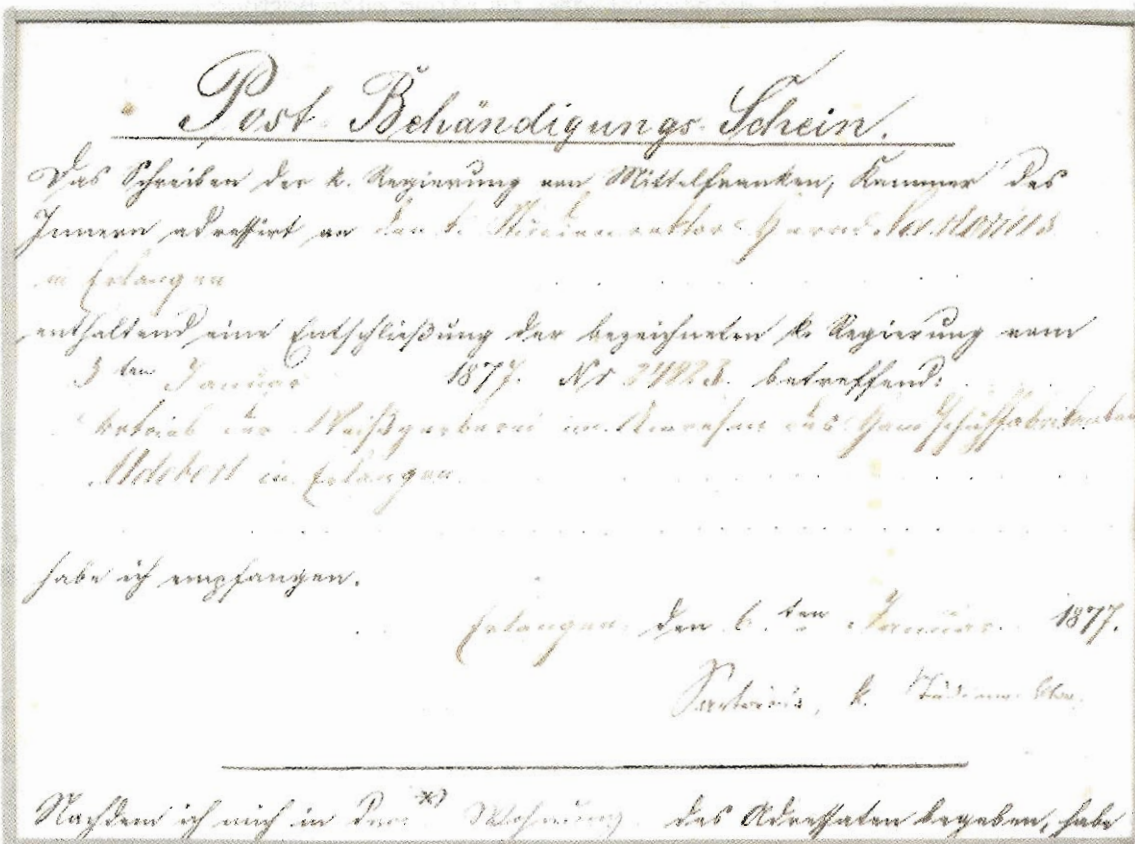 Post-Behändigungs-Schein.
Das Schreiben der k. Regierung von Mittelfranken, Kammer des
Innern adressirt an den k. Studienrektor Herrn Sartorius
in Erlangen
enthaltend eine Entschließung der bezeichneten k. Regierung vom
3ten Januar 1877. Nr 24823. betreffend:
Betrieb der Weißgerberei im Anwesen des Handschuhfabrikanten
in Erlangen
habe ich empfangen.
Erlangen den 6.ten Januar 1877.
Sartorius, k.
Nachdem ich mich in die *) Wohnung des Adressaten begeben, habe